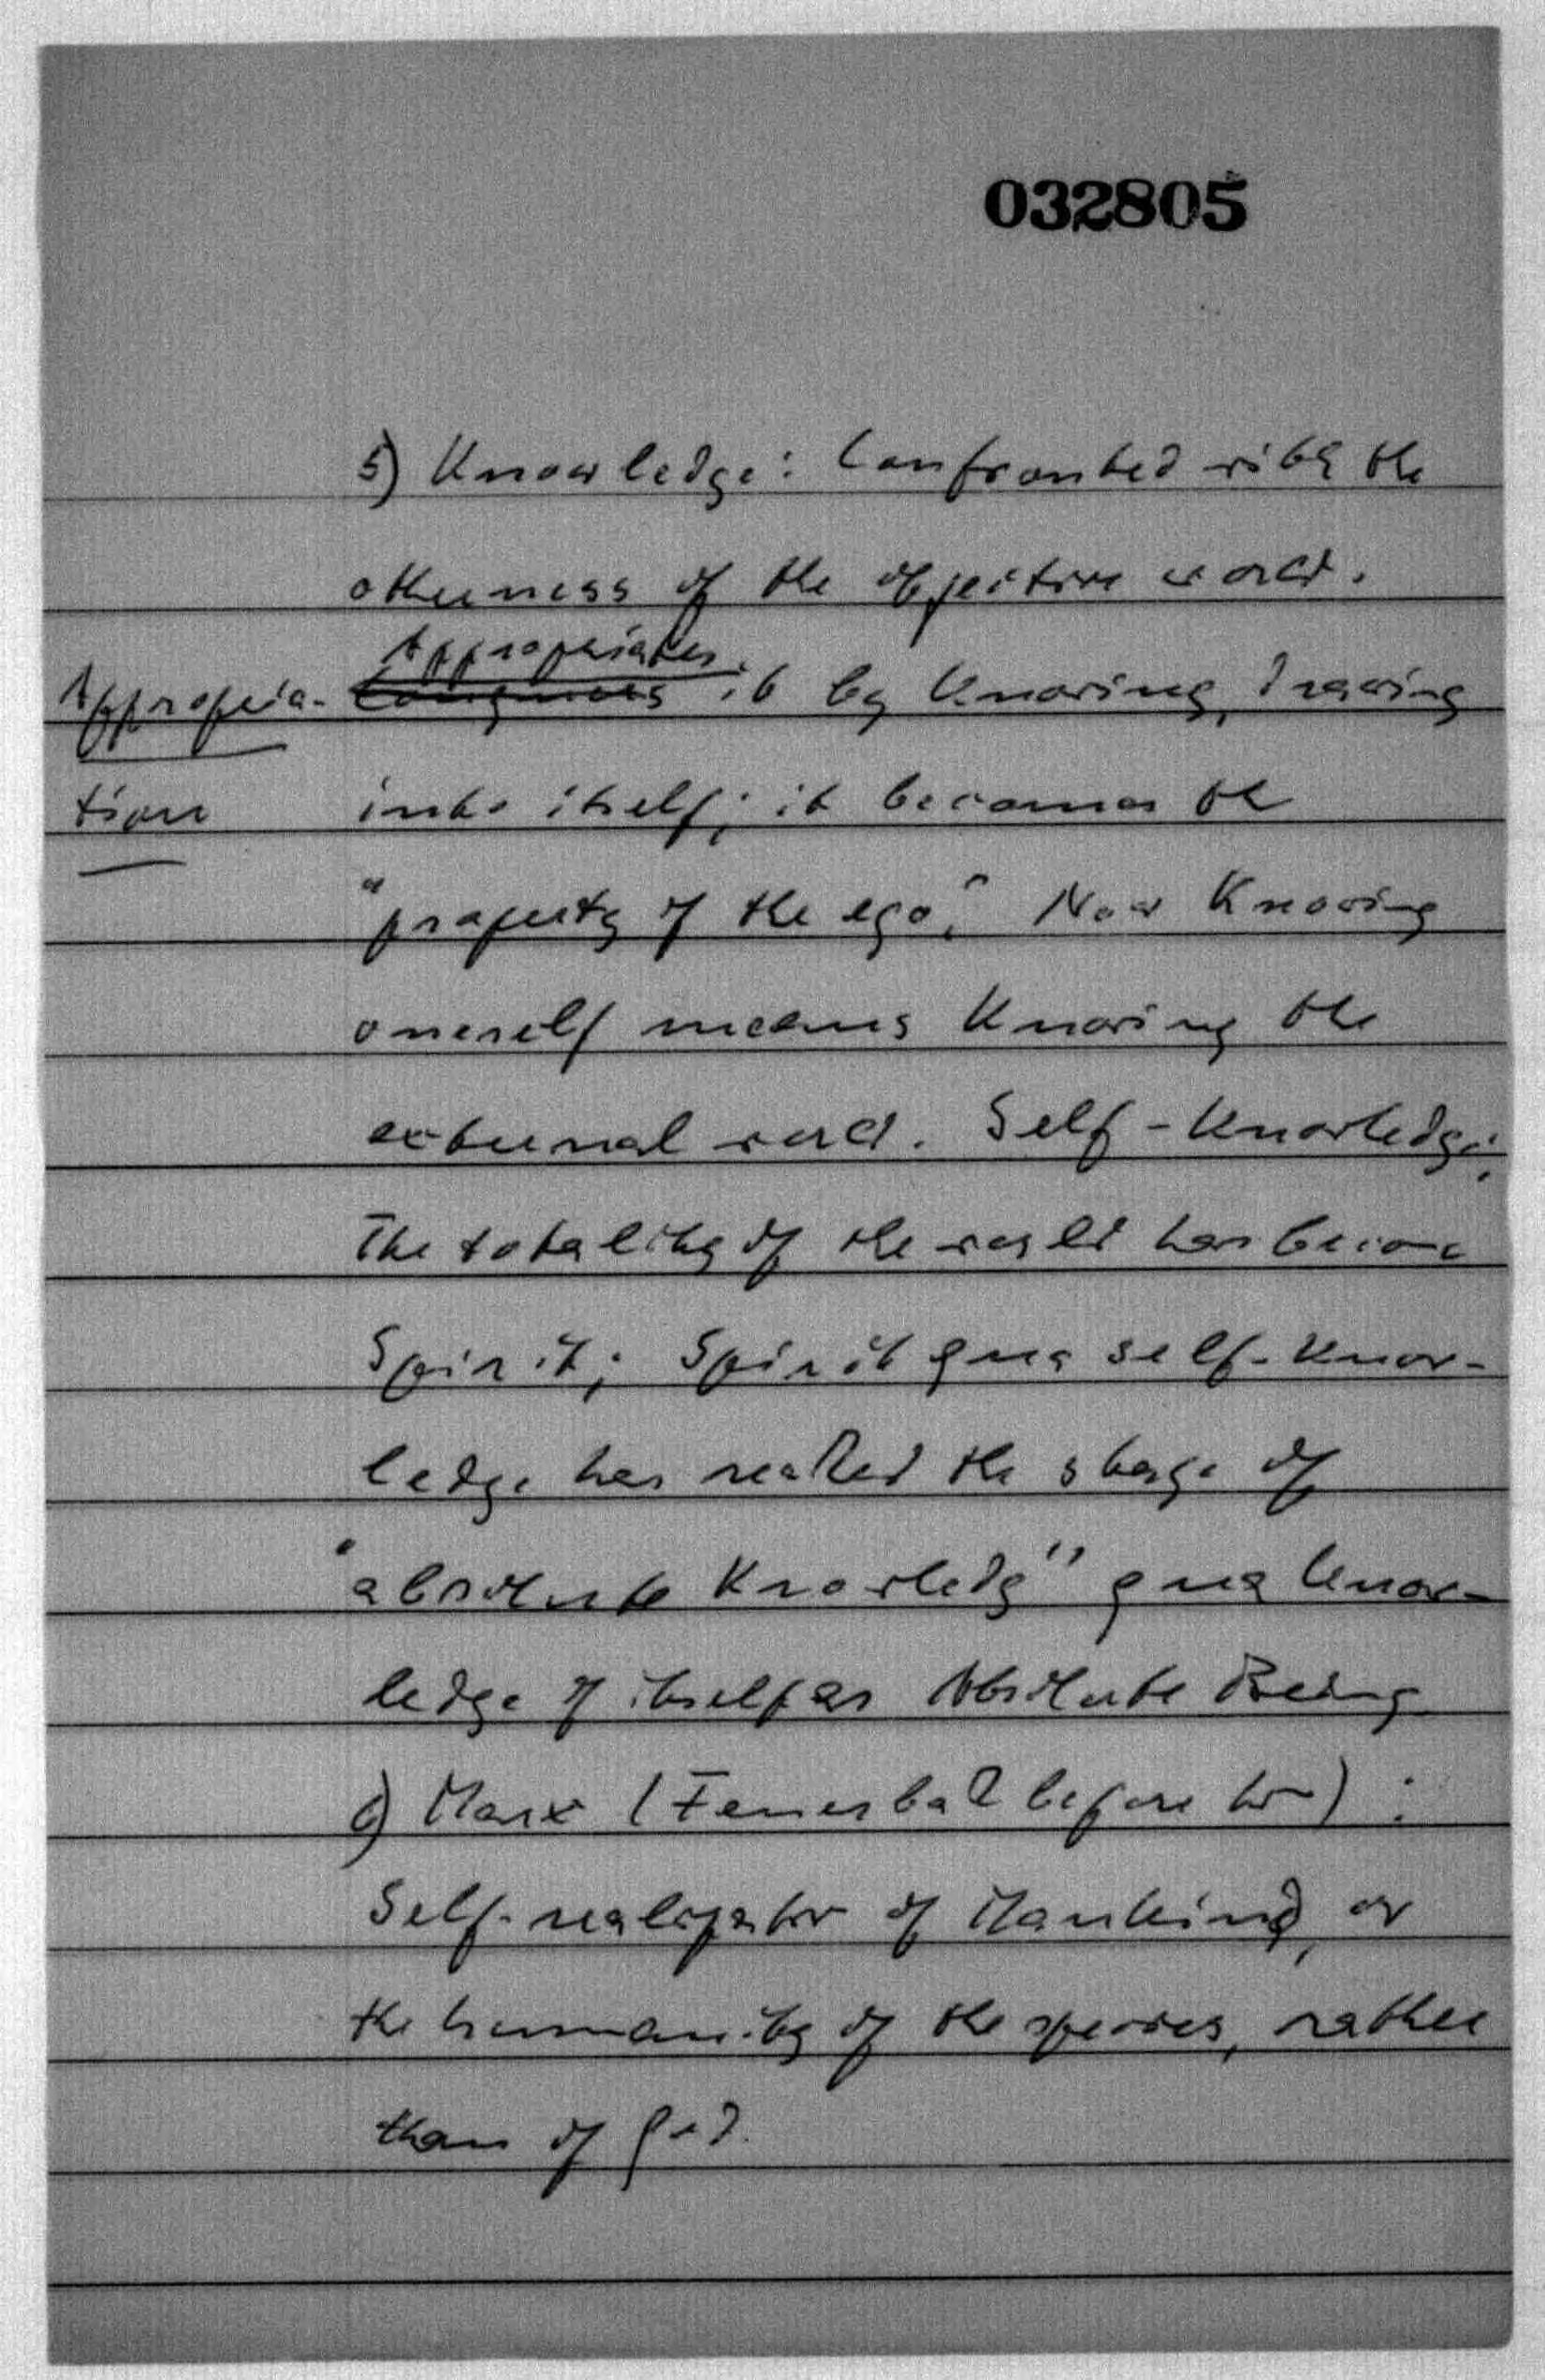 032805
5) Knowledge: Confronted with the
otherness of the objective world.
Appropriates
Appropria- ~~Conquers~~ it by knowing, drawing
tion into itself; it becomes the
"property of the ego". Now knowing
oneself means knowing the
external world. Self-knowledge:
The totality of the world has become
Spirit; Spirit qua self-know-
ledge has reached the stage of
"absolute knowledg" qua know-
ledge of itself as Absolute Being
6) Marx (Feuerbach before him):
Self-realization of Mankind, or
the humanity of the species, rather
than of God.